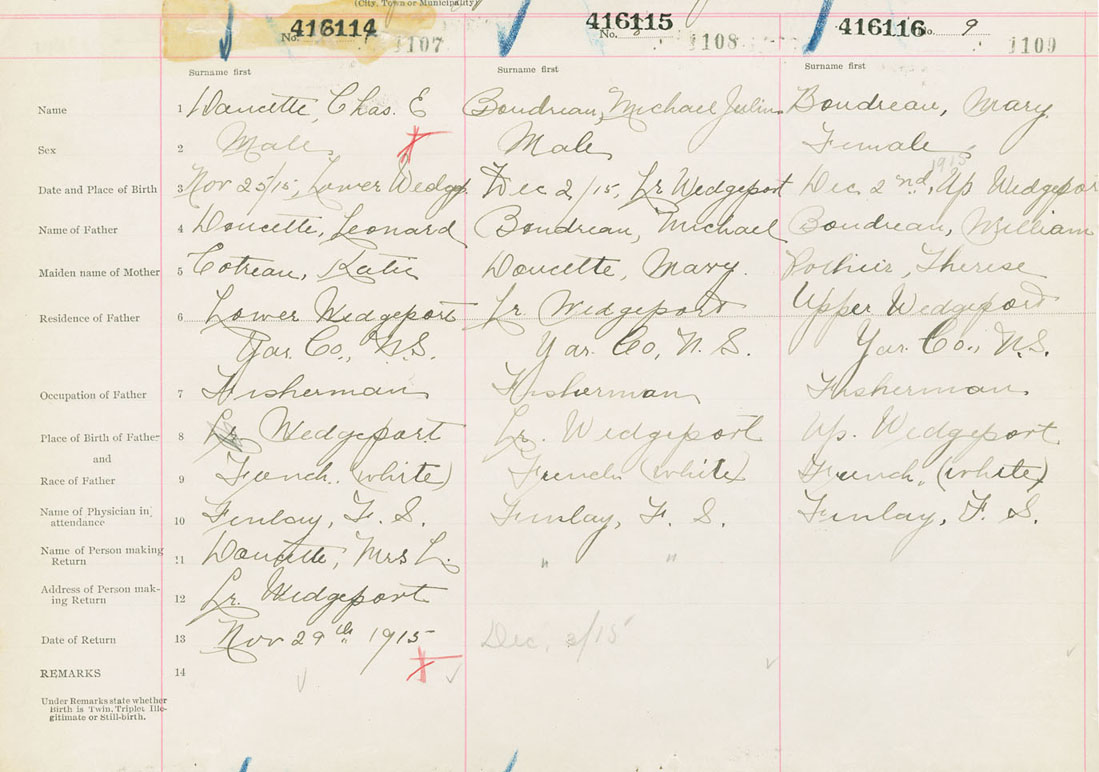 (City, Town or Municipality)
416114 416115 416116
No. 1107 No. 8 1108 No. 9 1109
Surname first Surname first Surname first
Name 1 Doucette, Chas. E Boudreau, Michael Julius Boudreau, Mary
Sex 2 Male Male Female
1915
Date and Place of Birth 3 Nov 25/15, Lower Wedgep Dec 2/15, Lr Wedgeport Dec 2nd, Up Wedgepor
Name of Father 4 Doucette, Leonard Boudreau, Michael Boudreau, William
Maiden name of Mother 5 Cotreau, Katie Doucette, Mary. Pothier, Therese
Residence of Father 6 Lower Wedgeport Lr Wedgeport Upper Wedgeport
Yar. Co., N.S. Yar. Co, N.S. Yar. Co., N.S.
Occupation of Father 7 Fisherman Fisherman Fisherman
Place of Birth of Father 8 Lr Wedgeport Lr. Wedgeport Up. Wedgeport
and
Race of Father 9 French. (white) French (white) French, (white)
Name of Physician in attendance 10 Finlay, F. S. Finlay, F. S. Finlay, F. S.
Name of Person making Return 11 Doucette, Mrs L. " "
Address of Person making Return 12 Lr. Wedgeport
Date of Return 13 Nov 29th 1915 Dec. 3/15
REMARKS 14
Under Remarks state whether
Birth is Twin, Triplet, Ille-
gitimate or Still-birth.